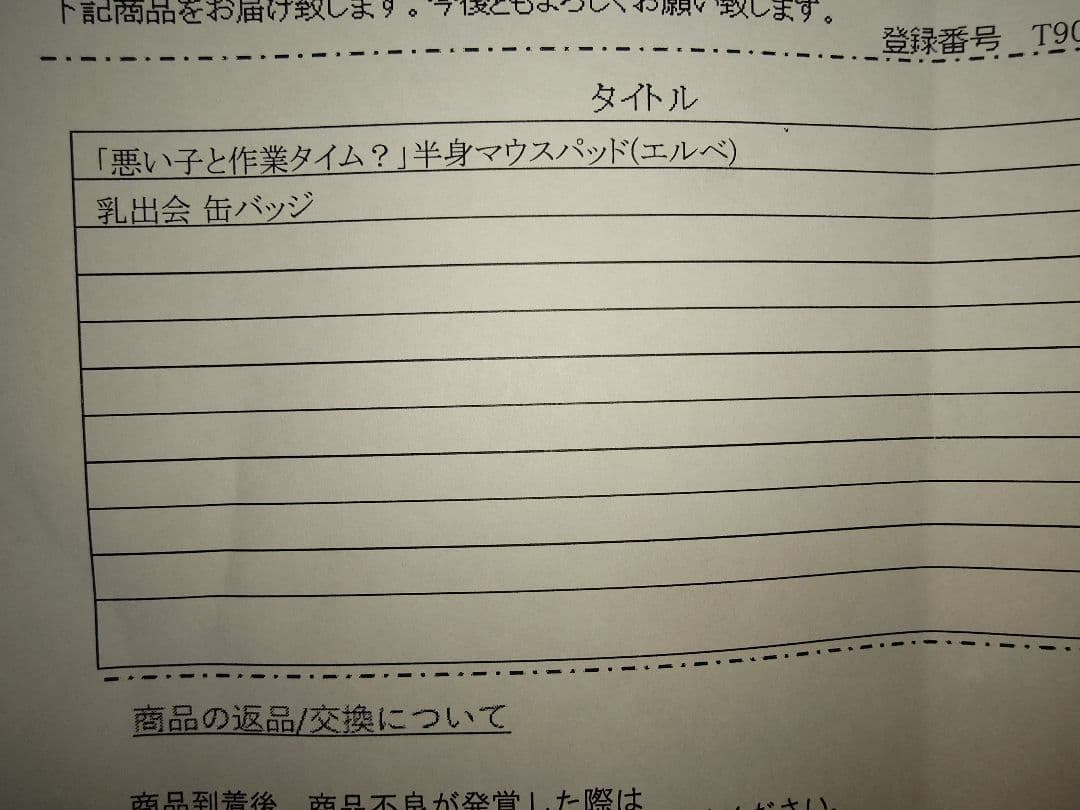 下記商品をお届け致します。今後ともよろしくお願い致します。
登録番号 T90
タイトル
「悪い子と作業タイム？」半身マウスパッド(エルベ)
乳出会 缶バッジ
商品の返品/交換について
商品到着後、商品不良が発覚した際は
ください。